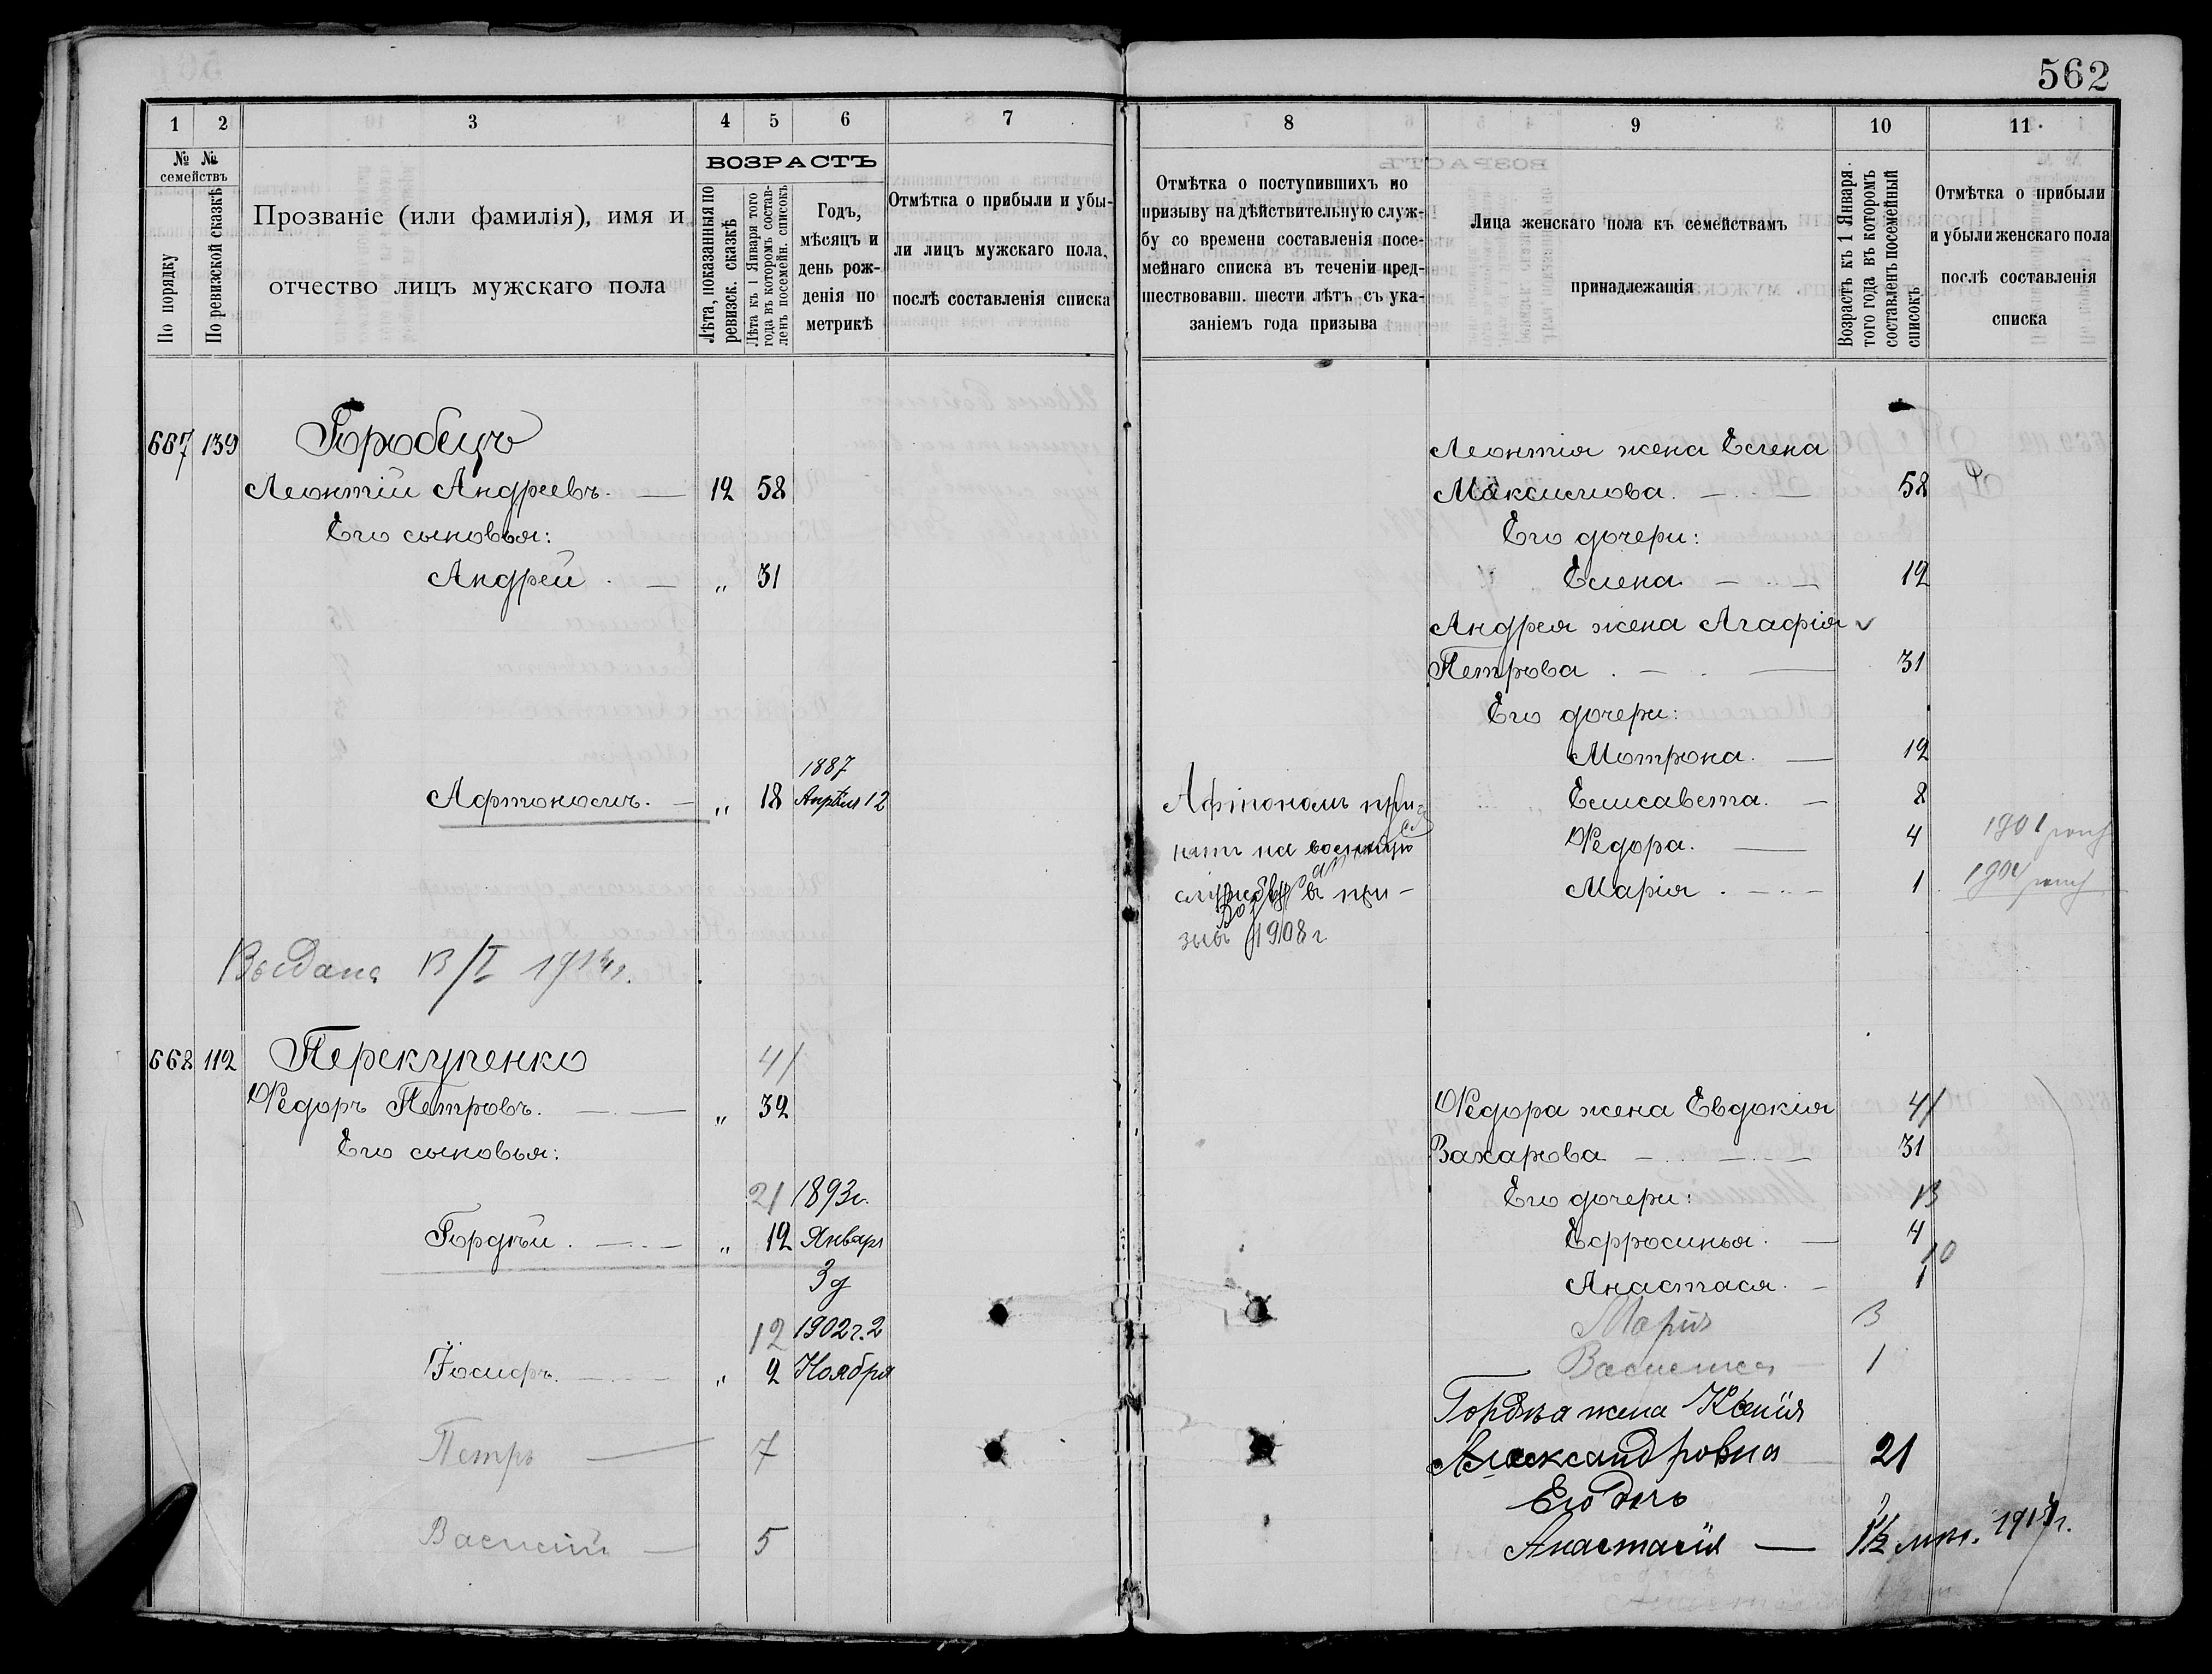 562
1 2 3 4 5 6 7
№ № семействъ
По порядку
По ревизской сказкѣ
Прозваніе (или фамилія), имя и
отчество лицъ мужскаго пола
ВОЗРАСТЪ
Лѣта, показанныя по
ревизск. сказкѣ
Лѣта къ 1 Января того
года въ которомъ состав-
ленъ посемейн. списокъ
Годъ,
мѣсяцъ и
день рож-
денія по
метрикѣ
Отмѣтка о прибыли и убы-
ли лицъ мужскаго пола,
послѣ составленія списка
667 139 Горобецъ
Леонтій Андреевъ. — 12 58
Его сыновья:
Андрей . — „ 31
1887
Афтономъ. — „ 18 Апрѣля 12
Выдана 13/I 1914г.
668 112 Перекупенко 41
Ѳедоръ Петровъ. — „ 32
Его сыновья:
21 1893г.
Гордѣй . — „ 12 Январь
3 д
12 1902г. 2
Іосифъ. — „ 2 Ноября
Петръ — 7
Василій — 5
8 9 10 11
Отмѣтка о поступившихъ по
призыву на дѣйствительную служ-
бу со времени составленія посе-
мейнаго списка въ теченіи пред-
шествовавш. шести лѣтъ съ ука-
заніемъ года призыва
Лица женскаго пола къ семействамъ
принадлежащія
Возрастъ къ 1 Января
того года въ которомъ
составленъ посемейный
списокъ
Отмѣтка о прибыли
и убыли женскаго пола
послѣ составленія
списка
Леонтія жена Елена
Максимова. — 58
Его дочери:
Елена — 12
Андрея жена Агафія
Петрова . — 31
Его дочери:
Мотрона. — 12
Афтономъ при-
Елисавета. — 8
нятъ на военную
Ѳедора. — 4 1901
службу въ при-
Марія . — 1 1904
зывъ 1908 г
Ѳедора жена Евдокія 41
Захарова — 31
Его дочери: 13
Ефросинья. — 4
10
Анастася. — 1
Марія 3
Василиса — 1
Гордѣя жена Ксенія
Александровна 21
Его дочь
Анастасія — 1½ 1914г.